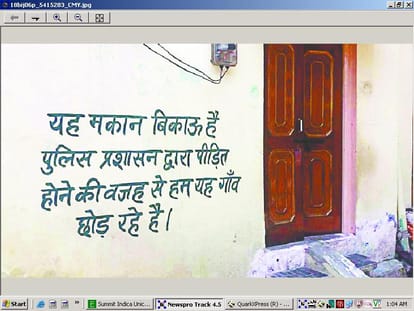 18bij06p_5415283_CMY.jpg
यह मकान बिकाऊ हैं
पुलिस प्रशासन द्वारा पीड़ित
होने की वजह से हम यह गाँव
छोड़ रहे है।
Start
Summit Indica Unic...
Newspro Track 4.5
QuarkXPress (R) - ...
1:04 AM